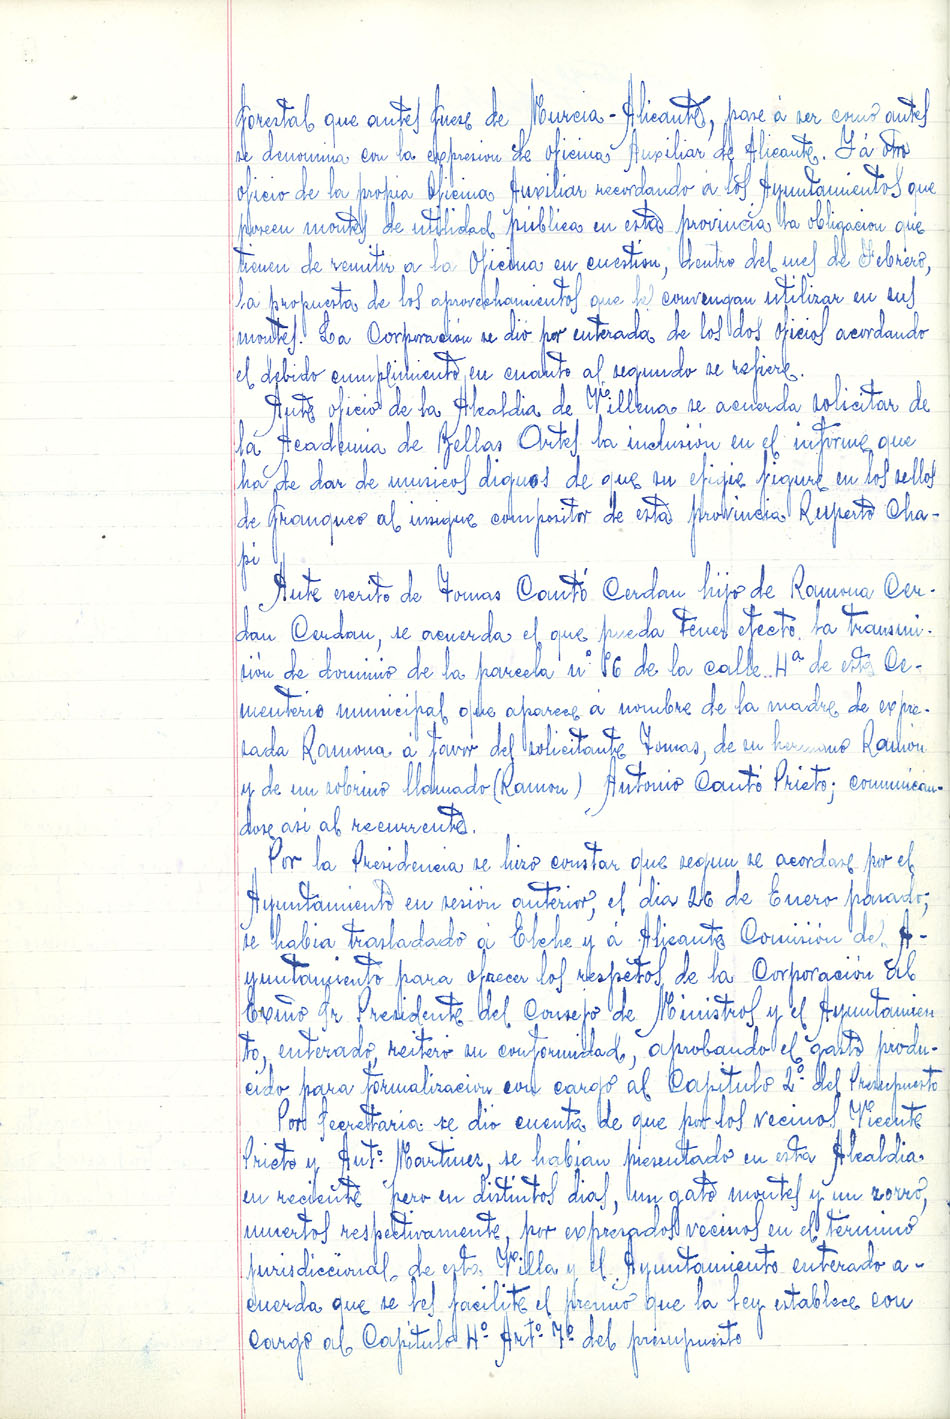 forestal que antes fuese de Murcia-Alicante, pase á ser como antes
se denomina con la expresion de oficina Auxiliar de Alicante. Y á otro
oficio de la propia Oficina Auxiliar recordando á los Ayuntamientos que
poseen montes de utilidad pública en esta provincia la obligacion que
tienen de remitir a la Oficina en cuestion, dentro del mes de Febrero,
la propuesta de los aprovechamientos que les convengan utilizar en sus
montes. La Corporación se dió por enterada de los dos oficios acordando
el debido cumplimiento en cuanto al segundo se refiere.
Ante oficio de la Alcaldia de Villena se acuerda solicitar de
la Academia de Bellas Artes la inclusión en el informe que
há de dar de musicos dignos de que su efigie figure en los sellos
de franqueo al insigne compositor de esta provincia Ruperto Cha-
pi
Ante escrito de Tomas Cantó Cerdan hijo de Ramona Cer-
dan Cerdan, se acuerda el que pueda tener efecto la transmi-
sión de dominio de la parcela nº 56 de la calle 4ª de este Ce-
menterio municipal que aparece á nombre de la madre de expre-
sada Ramona á favor del solicitante Tomas, de su hermano Ramón
y de un sobrino llamado (Ramon) Antonio Cantó Prieto; comunican-
dose asi al recurrente.
Por la Presidencia se hizo constar que segun se acordase por el
Ayuntamiento en sesión anterior, el dia 26 de Enero pasado;
se habia trasladado á Elche y á Alicante Comisión del A-
yuntamiento para ofrecer los respetos de la Corporación al
Exmo Sr Presidente del Consejo de Ministros y el Ayuntamien
to, enterado, reiteró su conformidad, aprobando el gasto produ-
cido para formalizacion con cargo al Capitulo 2º del Presupuesto
Por Secretaria se dió cuenta de que por los vecinos Vicente
Prieto y Antº Martinez, se habian presentado en esta Alcaldia
en reciente pero en distintos dias, un gato montes y un zorro,
muertos respectivamente, por expresados vecinos en el término
jurisdiccional de esta Villa y el Ayuntamiento enterado a-
cuerda que se les facilite el premio que la Ley establece con
cargo al Capitulo 4º Artº 7º del presupuesto